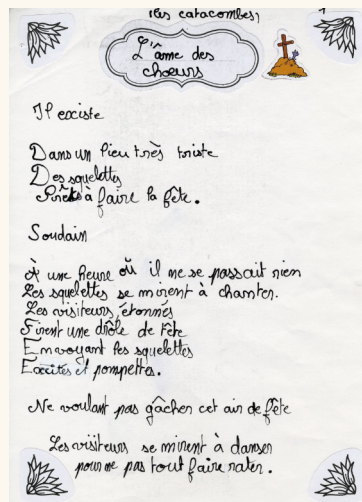 (les catacombes)
L'âme des
choeurs
Il existe
Dans un lieu très triste
Des squelettes
Prêts à faire la fête.
Soudain
À une heure où il ne se passait rien
Les squelettes se mirent à chanter.
Les visiteurs, étonnés
Firent une drôle de tête
En voyant les squelettes
Excités et pompettes.
Ne voulant pas gâcher cet air de fête
Les visiteurs se mirent à danser
pour ne pas tout faire rater.